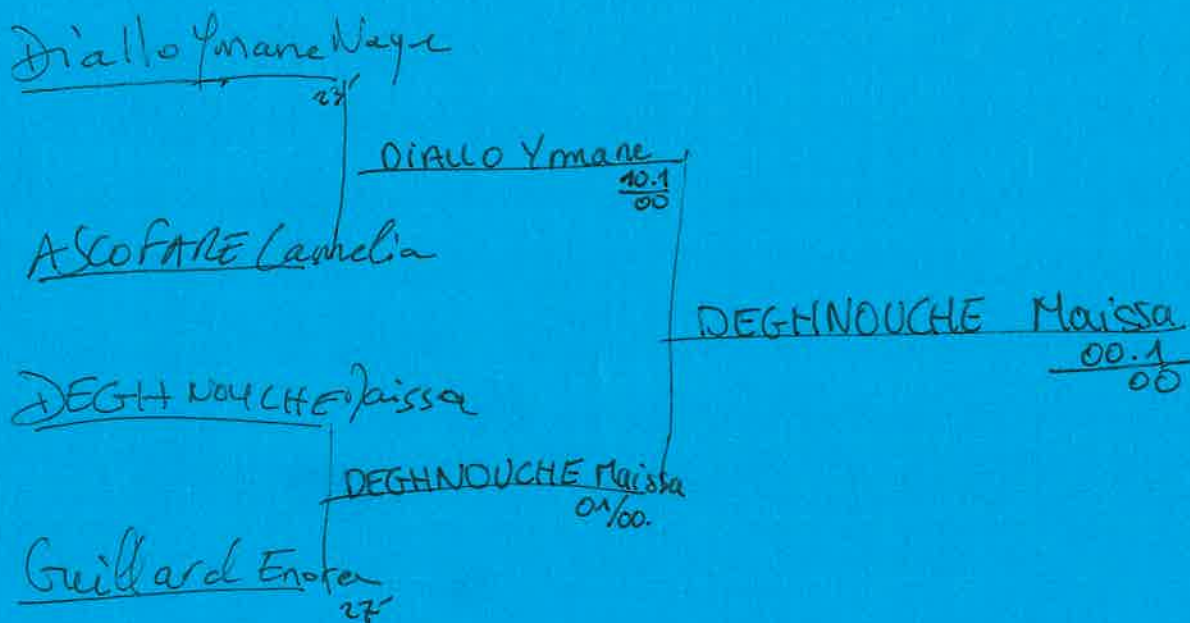 Diallo Ymane Naye
23
DIALLO Ymane
10.1
00
ASCOFARE Camelia
DEGHNOUCHE Maissa
00.1
00
DEGHNOUCHE Maissa
DEGHNOUCHE Maissa
01/00.
Guillard Enora
27